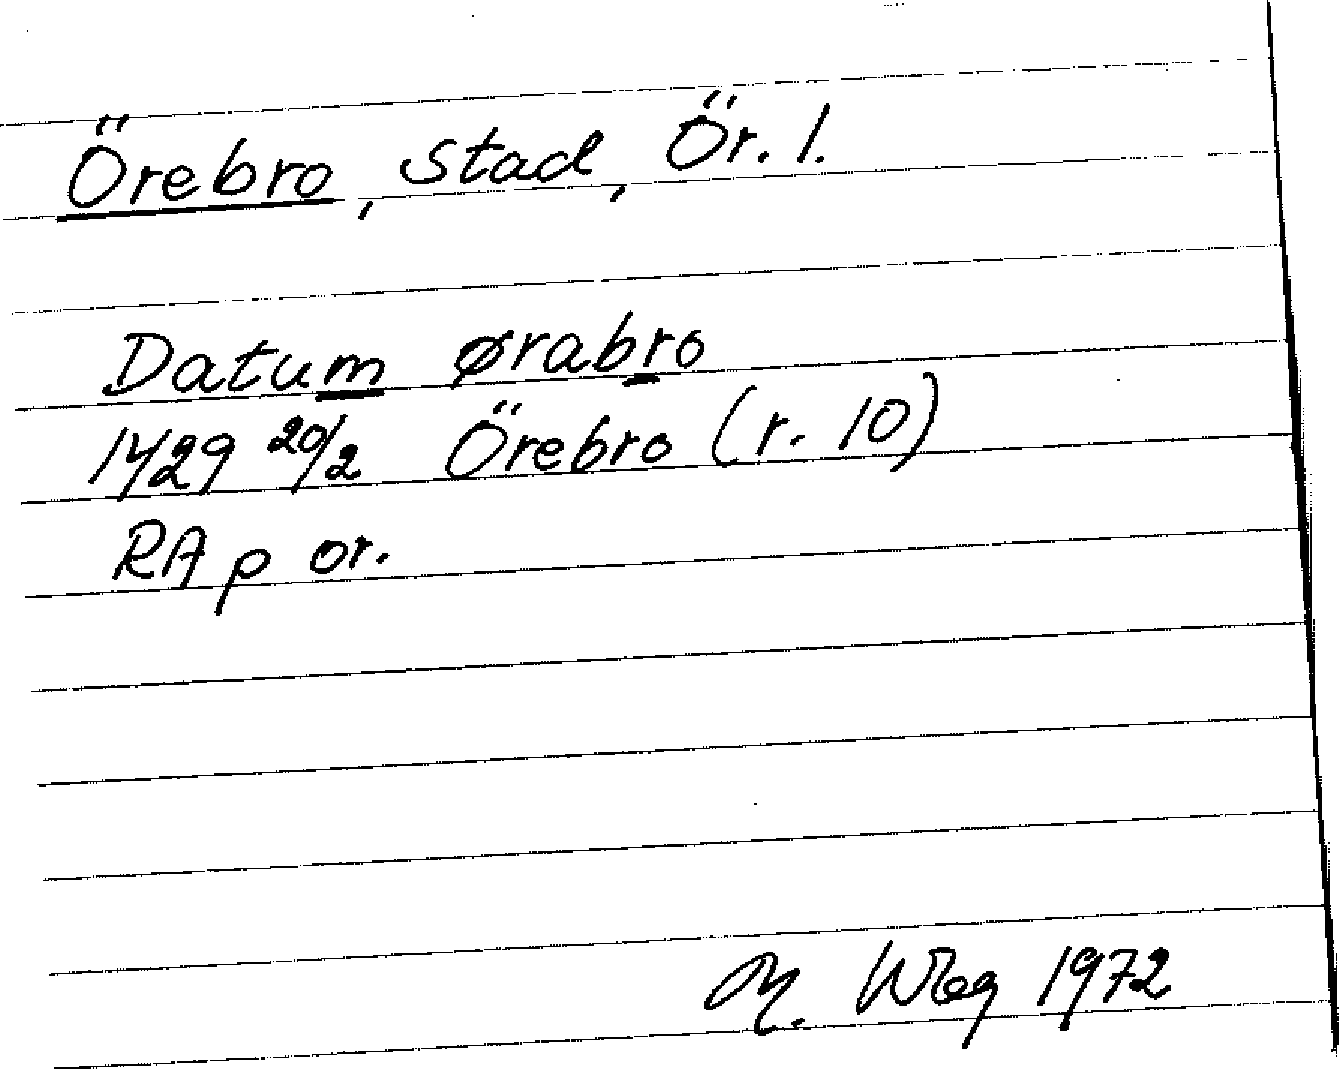 Örebro, stad, Ör. l.
Datum ørabro
1429 20/2 Örebro (r. 10)
RA p or.
1972